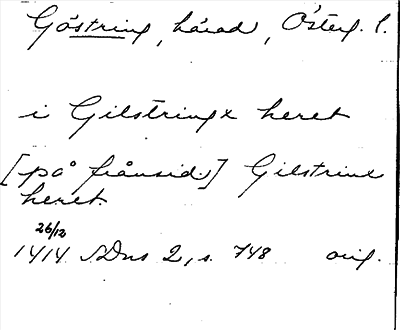 Göstring, härad, Österg. l.
i Gilstringx heret
[på frånsid.] Gilstrinx
heret.
26/12
1414 SDns 2, s. 748 orig.